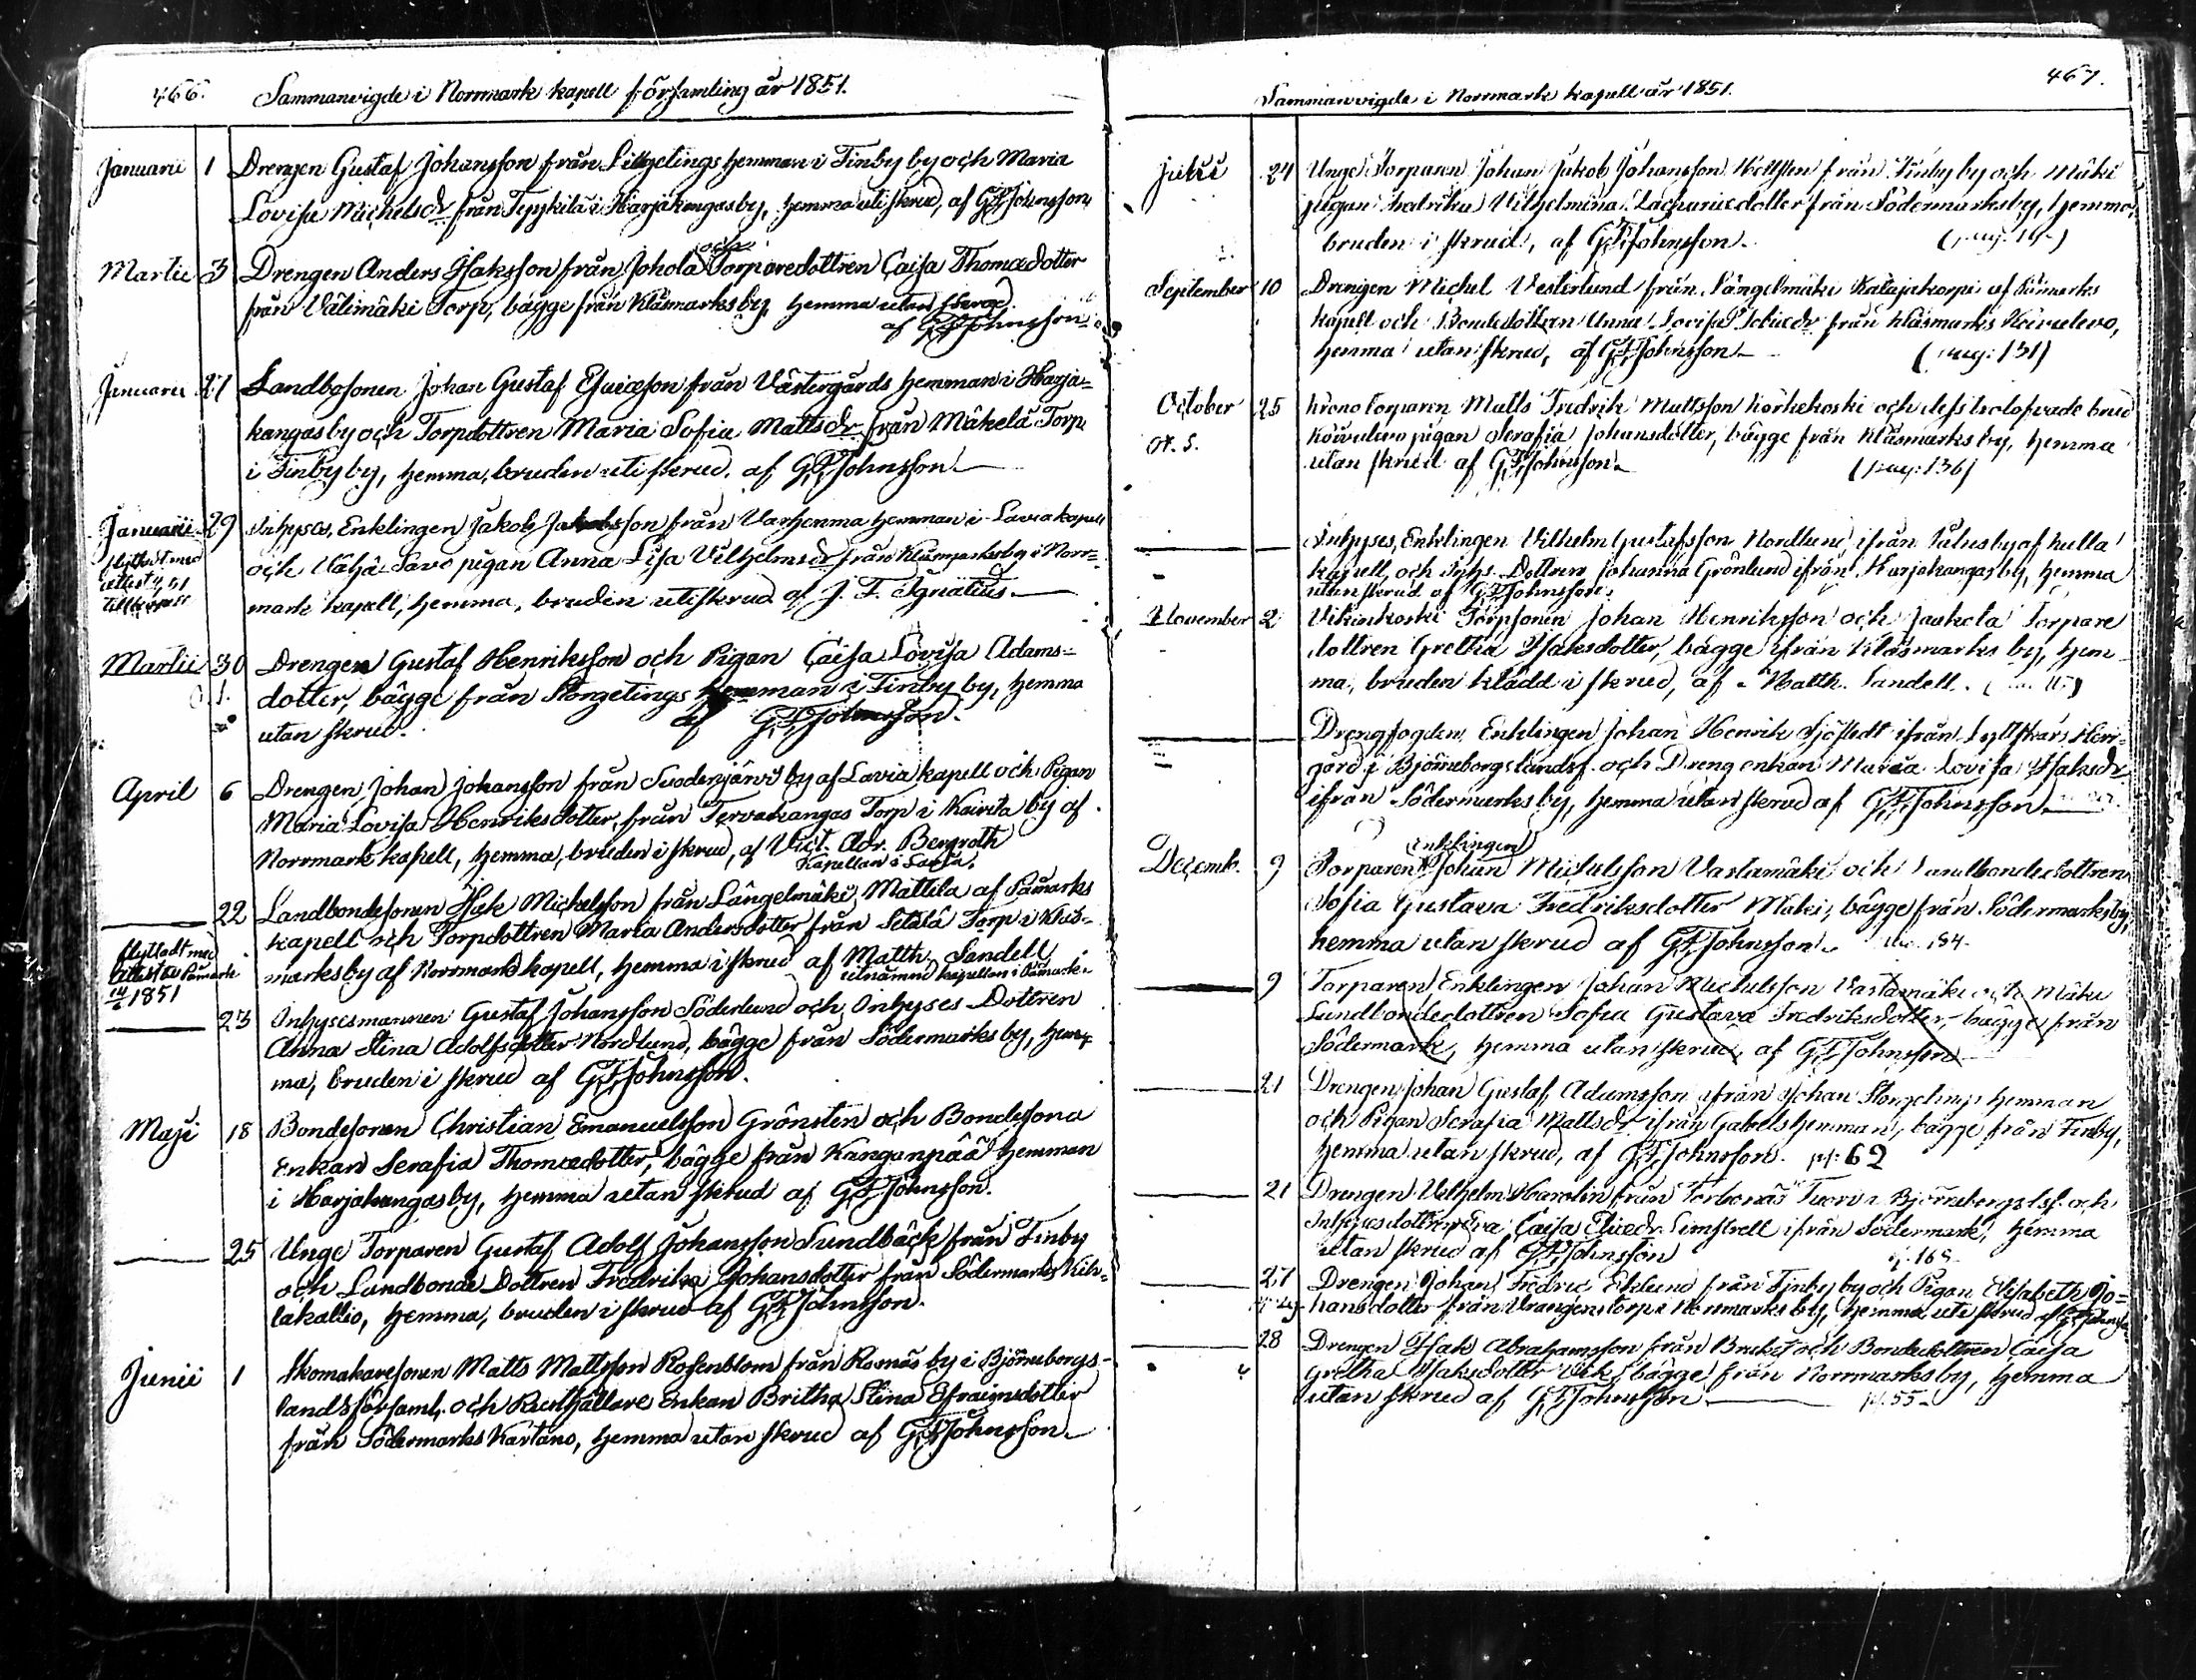 466. Sammanvigde i Norrmark kapell församling år 1851.
Januarii 1 Drengen Gustaf Johansson från Lillgetings hemman i Finby by och Maria
Lovisa Michelsdr från Tyykilä i Harjakangas by, hemma uti skrud, af G F Johnsson
Martii 3 Drengen Anders Isaksson från Johola och Torparedottren Caisa Thomædotter
från Välimäki Torp, bägge från Kläsmarks by, hemma utan
af G F Johnsson
Januarii 27 Landbosonen Johan Gustaf Esaiæson från Västergårds hemman i Harja-
kangas by och Torpdottren Maria Sofia Mattsdr från Mäkelä Torp
i Finby by, hemma, bruden uti skrud. af G F Johnsson
Januarii 29 Inhyses, Enklingen Jakob Jakobsson från Varhenma hemman i Lavia kapell
flyttadt med
attest
och Vähä Savo pigan Anna Lisa Vilhelmsdr från Kläsmarks by i Norr-
mark kapell, hemma, bruden uti skrud af J. F. Ignatius.
Martii 30 Drengen Gustaf Henriksson och Pigan Caisa Lovisa Adams-
dotter, bägge från Storgetings hemman i Finby by, hemma
utan skrud. af G F Johnsson.
April 6 Drengen Johan Johansson från Suodenjärvi by af Lavia kapell och Pigan
Maria Lovisa Henriksdotter, från Tervakangas Torp i Kairila by af
Norrmark kapell, hemma, bruden i skrud, af Vict. Adr. Bergroth
Kapellan i Lavia.
22 Landbondesonen Isak Michelsson från Längelmäki Mattila af Påmarks
kapell och Torpdottren Maria Andersdotter från Setälä Torp i Kläs-
flyttadt med
attest till Påmark
1851
marks by af Norrmark kapell, hemma i skrud af Matth. Sandell
utnämnd kapellan i Påmark.
23 Inhysesmannen Gustaf Johansson Söderlund och Inhyses Dottren
Anna Stina Adolfsdotter Nordlund, bägge från Södermarks by, hem-
ma, bruden i skrud af G F Johnsson.
Maji 18 Bondesonen Christian Emanuelsson Grönsten och Bondesona
Enkan Serafia Thomædotter, bägge från Kanganpää hemman
i Harjakangas by, hemma utan skrud af G F Johnsson.
25 Unge Torparen Gustaf Adolf Johansson Sundbäck från Finby
och Landbonde Dottren Fredrika Johansdotter från Södermarks Kih-
lakallio, hemma, bruden i skrud af G F Johnsson.
Junii 1 Skomakaresonen Matts Mattsson Rosenblom från Rosnäs by i Björneborgs-
landsförsaml. och Rusthållare Enkan Britha Stina Efraimsdotter
från Södermarks Kartano, hemma utan skrud af G F Johnsson
Sammanvigde i Norrmark kapell år 1851. 467.
Julii 24 Unge Torparen Johan Jakob Johansson från Finby by och Mäki
pigan Vilhelmina Zachariædotter från Södermarks by, hemma,
bruden i skrud, af G F Johnsson
September 10 Drengen Michel Vesterlund från Längelmäki Katajakorpi af Påmarks
kapell och Bondedottren Anna Lovisa från Kläsmarks Koivulevo,
hemma utan skrud, af G F Johnsson (pag: 131)
October 25 Krono torparen Matts Fredrik Mattsson Körkekoski och dess trolofvade brud
Koivulevo pigan Serafia Johansdotter, bägge från Kläsmarks by, hemma
utan skrud af G F Johnsson (pag: 136)
Inhyses, Enklingen Vilhelm Gustafsson Nordlund ifrån Palus by af Kulla
kapell, och Inhs. Dottren Johanna Grönlund ifrån Harjakangas by, hemma
utan skrud af G F Johnsson.
November 2 Vikinkoski Torpsonen Johan Henriksson och Torpare
dottren Gretha Isaksdotter, bägge ifrån Kläsmarks by, hem-
ma, bruden klädd i skrud, af Matth. Sandell.
Drengfogden, Enklingen Johan Henrik Sjöstedt ifrån Lyttskärs Herr-
gård i Björneborgs landsf. och Dreng enkan Maria Lovisa Isaksdr
ifrån Södermarks by, hemma utan skrud af G F Johnsson
Decemb. 9 Torparen Enklingen Johan Michelsson Vastamäki och Landbondedottren
Sofia Gustava Fredriksdotter Mäki, bägge från Södermarks by,
hemma utan skrud af G F Johnsson 184.
9 Torparen Enklingen Johan Michelsson Vastamäki och Mäki
Landbondedottren Sofia Gustava Fredriksdotter, bägge från
Södermark, hemma utan skrud, af G F Johnsson
21 Drengen Johan Gustaf Adamsson ifrån Johan Storgetings hemman
och Pigan Serafia Mattsdr ifrån Gabels hemman, bägge från Finby,
hemma utan skrud, af G F Johnsson. p: 62
21 Drengen Vilhelm Karolin från Torbonäs Tuori i Björneborgs lsf. och
Inhysesdottren Eva Caisa ifrån Södermark, hemma
utan skrud af G F Johnsson p. 168
27 Drengen Johan Fredric Eklund från Finby by och Pigan Elisabeth Jo-
hansdotter från Vrangens torp i Norrmarks by, hemma uti skrud af G F Johnsson
28 Drengen Isak Abrahamsson från Bruket och Bondedottren Caisa
Gretha Isaksdotter Vik, bägge från Norrmarks by, hemma
utan skrud af G F Johnsson p. 55